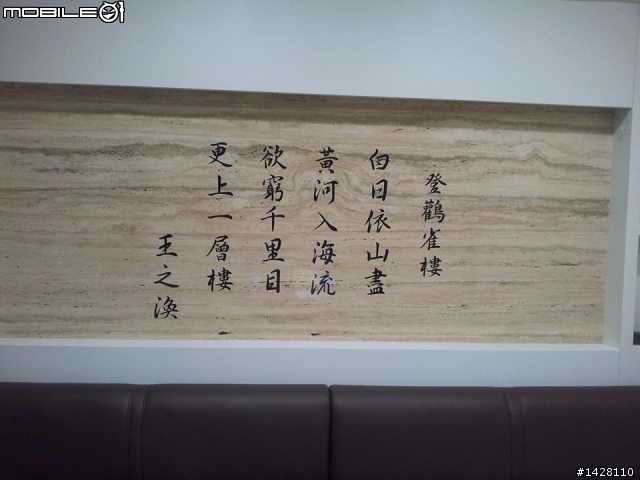 登鸛雀樓
白日依山盡
黃河入海流
欲窮千里目
更上一層樓
王之渙
MOBILE01
#1428110